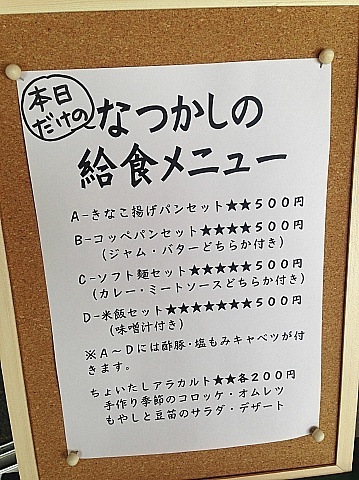 本日
だけの
なつかしの
給食メニュー
A-きなこ揚げパンセット★★500円
B-コッペパンセット★★★★500円
(ジャム・バターどちらか付き)
C-ソフト麺セット★★★★★500円
(カレー・ミートソースどちらか付き)
D-米飯セット★★★★★★★500円
(味噌汁付き)
※A～Dには酢豚・塩もみキャベツが付
きます。
ちょいたしアラカルト★★各200円
手作り季節のコロッケ・オムレツ
もやしと豆苗のサラダ・デザート